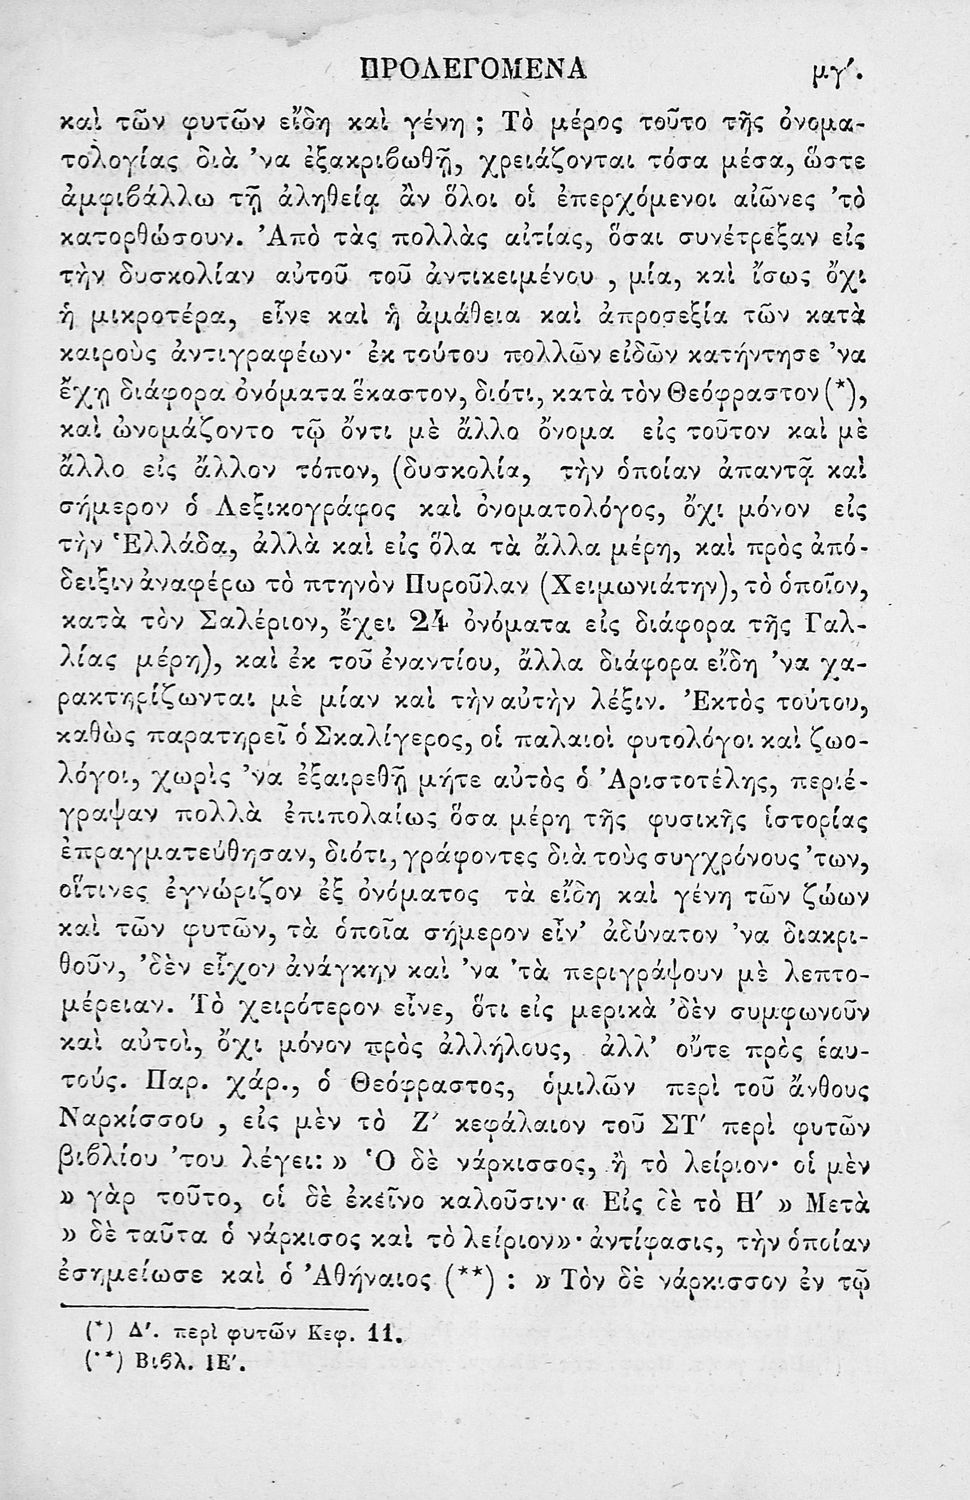 ΠΡΟΛΕΓΟΜΕΝΑ μγ΄.
καὶ τῶν φυτῶν εἴδη καὶ γένη ; Τὸ μέρος τοῦτο τῆς ὀνομα-
τολογίας διὰ ’να ἐξακριβωθῇ, χρειάζονται τόσα μέσα, ὥστε
ἀμφιβάλλω τῇ ἀληθείᾳ ἂν ὅλοι οἱ ἐπερχόμενοι αἰῶνες ’τὸ
κατορθώσουν. Ἀπὸ τὰς πολλὰς αἰτίας, ὅσαι συνέτρεξαν εἰς
τὴν δυσκολίαν αὐτοῦ τοῦ ἀντικειμένου , μία, καὶ ἴσως ὄχι
ἡ μικροτέρα, εἶνε καὶ ἡ ἀμάθεια καὶ ἀπροσεξία τῶν κατὰ
καιροὺς ἀντιγραφέων· ἐκ τούτου πολλῶν εἰδῶν κατήντησε ’να
ἔχῃ διάφορα ὀνόματα ἕκαστον, διότι, κατὰ τὸν Θεόφραστον (*),
καὶ ὠνομάζοντο τῷ ὄντι μὲ ἄλλο ὄνομα εἰς τοῦτον καὶ μὲ
ἄλλο εἰς ἄλλον τόπον, (δυσκολία, τὴν ὁποίαν ἀπαντᾷ καὶ
σήμερον ὁ Λεξικογράφος καὶ ὀνοματολόγος, ὄχι μόνον εἰς
τὴν Ἑλλάδα, ἀλλὰ καὶ εἰς ὅλα τὰ ἄλλα μέρη, καὶ πρὸς ἀπό-
δειξιν ἀναφέρω τὸ πτηνὸν Πυροῦλαν (Χειμωνιάτην), τὸ ὁποῖον,
κατὰ τὸν Σαλέριον, ἔχει 24 ὀνόματα εἰς διάφορα τῆς Γαλ-
λίας μέρη), καὶ ἐκ τοῦ ἐναντίου, ἄλλα διάφορα εἴδη ’να χα-
ρακτηρίζωνται μὲ μίαν καὶ τὴν αὐτὴν λέξιν. Ἐκτὸς τούτου,
καθὼς παρατηρεῖ ὁ Σκαλίγερος, οἱ παλαιοὶ φυτολόγοι καὶ ζωο-
λόγοι, χωρὶς ’να ἐξαιρεθῇ μήτε αὐτὸς ὁ Ἀριστοτέλης, περιέ-
γραψαν πολλὰ ἐπιπολαίως ὅσα μέρη τῆς φυσικῆς ἱστορίας
ἐπραγματεύθησαν, διότι, γράφοντες διὰ τοὺς συγχρόνους ’των,
οἵτινες ἐγνώριζον ἐξ ὀνόματος τὰ εἴδη καὶ γένη τῶν ζώων
καὶ τῶν φυτῶν, τὰ ὁποῖα σήμερον εἶν’ ἀδύνατον ’να διακρι-
θοῦν, ’δὲν εἶχον ἀνάγκην καὶ ’να ’τὰ περιγράψουν μὲ λεπτο-
μέρειαν. Τὸ χειρότερον εἶνε, ὅτι εἰς μερικὰ ’δὲν συμφωνοῦν
καὶ αὐτοὶ, ὄχι μόνον πρὸς ἀλλήλους, ἀλλ’ οὔτε πρὸς ἑαυ-
τούς. Παρ. χάρ., ὁ Θεόφραστος, ὁμιλῶν περὶ τοῦ ἄνθους
Ναρκίσσου , εἰς μὲν τὸ Ζ΄ κεφάλαιον τοῦ ΣΤ΄ περὶ φυτῶν
βιβλίου ’του λέγει: » Ὁ δὲ νάρκισσος, ἢ τὸ λείριον· οἱ μὲν
» γὰρ τοῦτο, οἱ δὲ ἐκεῖνο καλοῦσιν· « Εἰς δὲ τὸ Η΄ » Μετὰ
» δὲ ταῦτα ὁ νάρκισος καὶ τὸ λείριον»· ἀντίφασις, τὴν ὁποίαν
ἐσημείωσε καὶ ὁ Ἀθήναιος (**) : » Τὸν δὲ νάρκισσον ἐν τῷ
(*) Δ΄. περὶ φυτῶν Κεφ. 11.
(**) Βιβλ. ΙΕ΄.